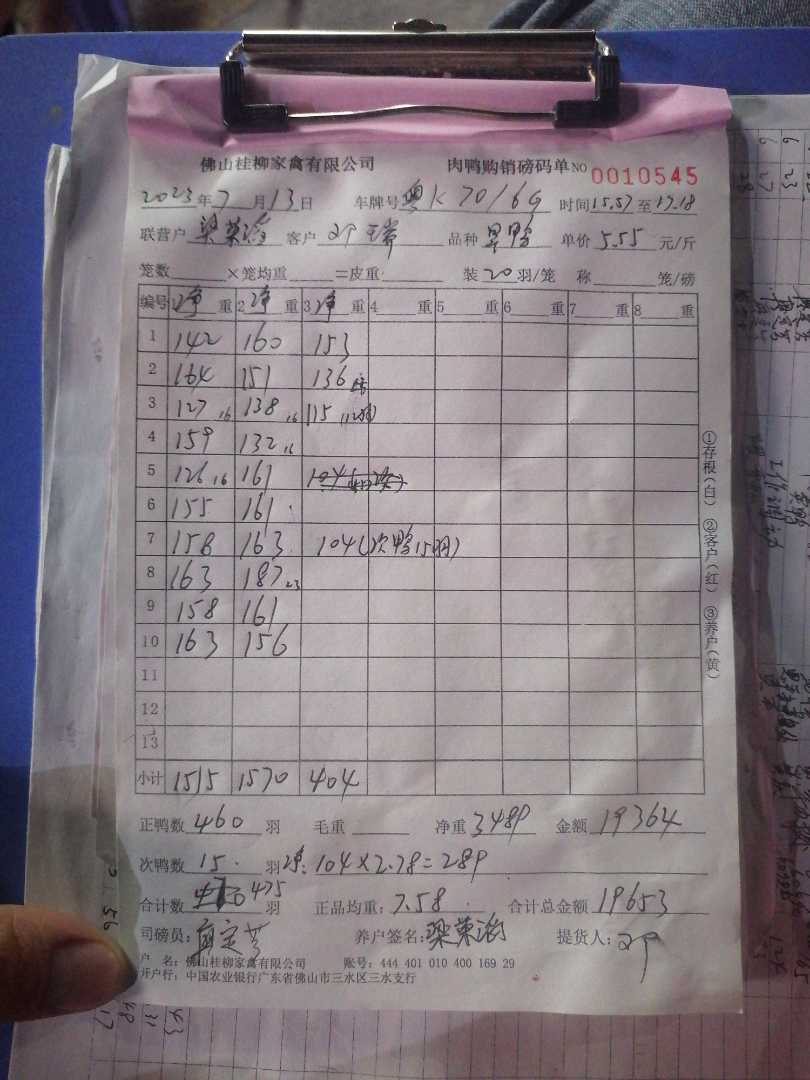 佛山桂柳家禽有限公司 肉鸭购销磅码单 NO 0010545
2023年7月13日 车牌号 粤K7016G 时间15.57至17.18
联营户 梁荣 客户 品种 单价 5.55 元/斤
笼数 ×笼均重 =皮重 装20羽/笼 称 笼/磅
编号 1净重 2净重 3净重 4 重 5 重 6 重 7 重 8 重
1 142 160 153
2 164 151 136
3 127 16 138 16 115 (12羽)
4 159 132 16
5 126 16 161
6 155 161
7 158 163 104(次鸭15羽)
8 163 187 23
9 158 161
10 163 156
11
12
13
小计 1515 1570 404
正鸭数 460 羽 毛重 净重 3489 金额 19364
次鸭数 15. 羽 净:104×2.78=289
合计数 475 羽 正品均重:7.58 合计总金额 19653
司磅员: 养户签名:梁荣 提货人:
户 名:佛山桂柳家禽有限公司 账号:444 401 010 400 169 29
开户行:中国农业银行广东省佛山市三水区三水支行
①存根(白) ②客户(红) ③养户(黄)